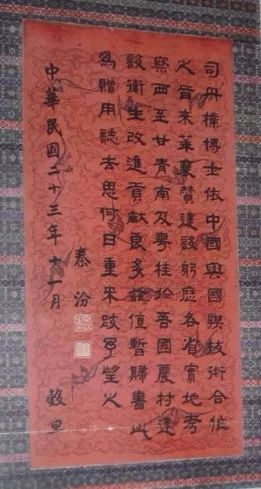 司丹樸博士依中國與國聯技術合作
之旨來華襄贊建設躬歷各省實地考
察西至甘青南及粵桂於吾國農村建
設衛生改進貢獻多值暫歸書此
為贈用誌去思何日重來跂予望之
秦汾
中華民國二十三年十一月 穀旦